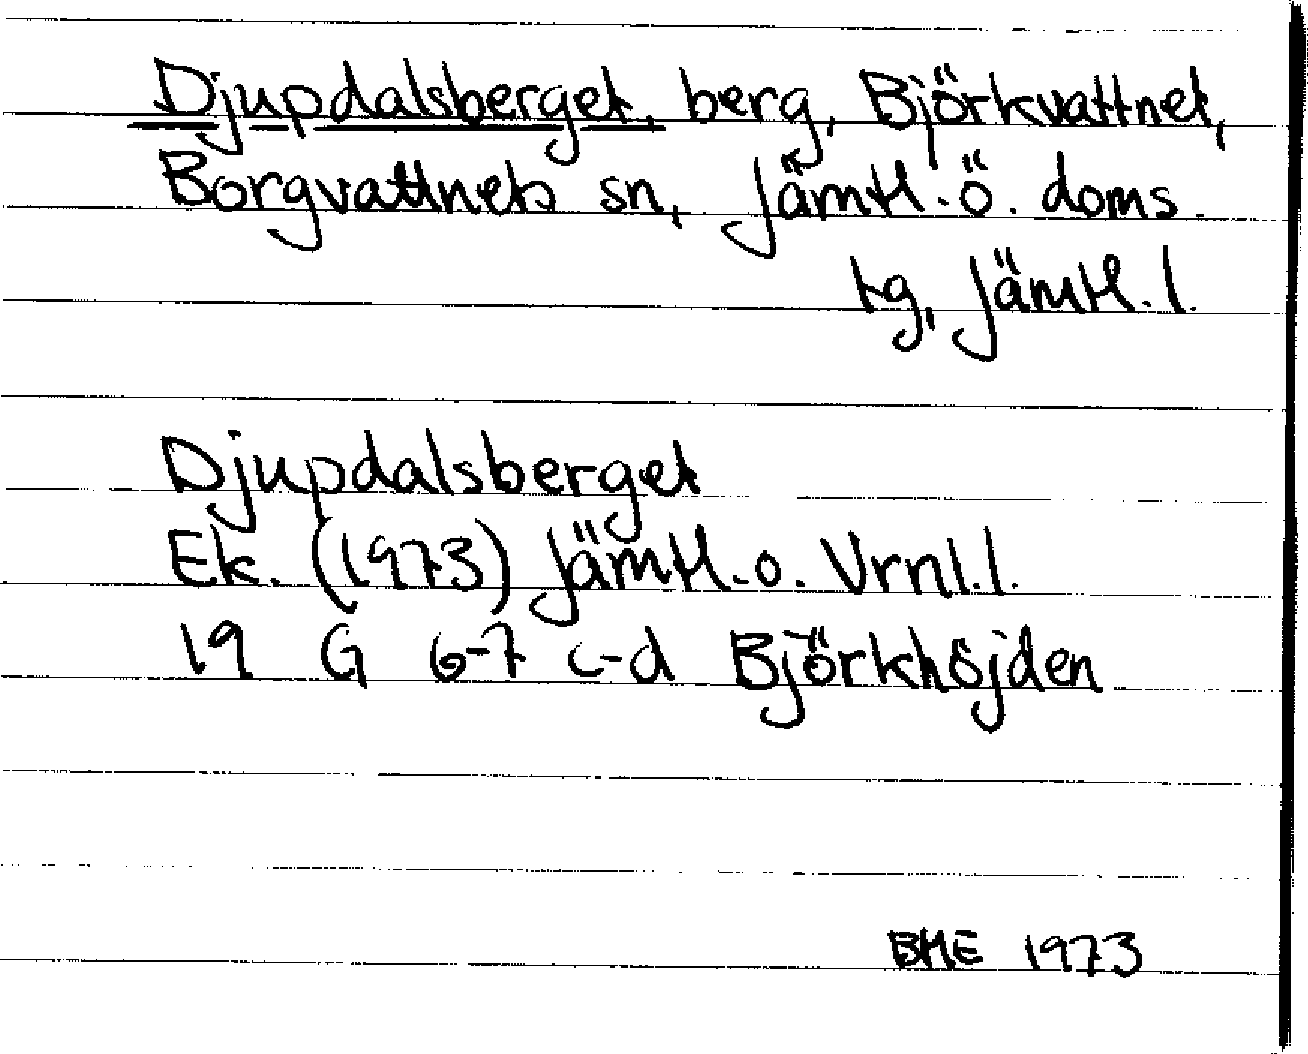 Djupdalsberget, berg, Björkvattnet,
Borgvattnets sn, Jämtl. ö. doms.
tg, Jämtl. l.
Djupdalsberget
Ek. (1973) Jämtl. o. Vrnl. l.
19 G 6-7 c-d Björkhöjden
BME 1973